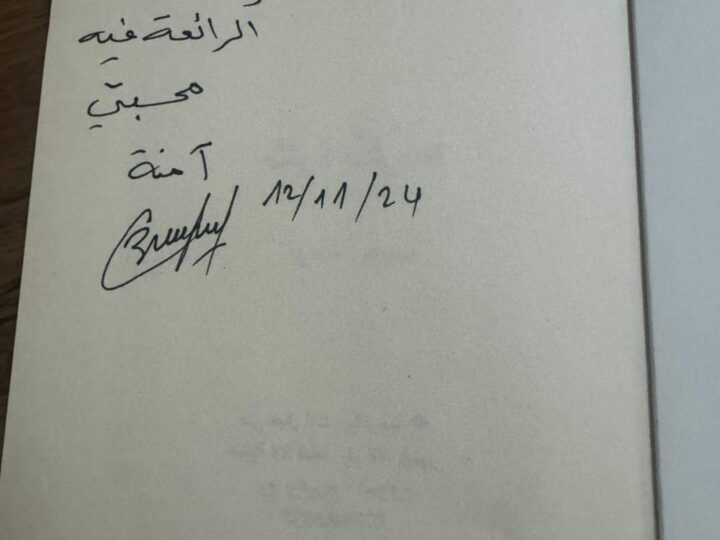 الرائعة فيه
محبتي
آمنة
12/11/24